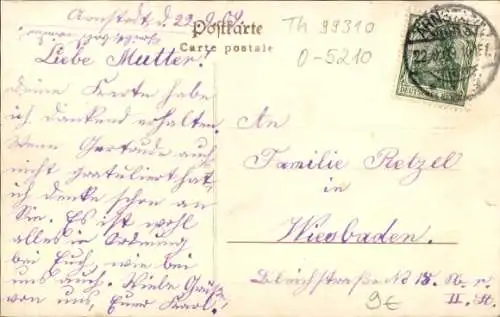 Arnstadt, d. 22.9.04
Postkarte
Carte postale
Th 99310
O-5210
ARNSTADT
DEUTSCHES REICH
Liebe Mutter!
Deine Karte habe
ich dankend erhalten.
Wenn Gertrude auch
nicht gratuliert hat,
ich denke schon an
Sie. Es ist wohl
alles in Ordnung
bei Euch, wie bei
uns auch. Viele Grüße
von uns, Euer Karl.
An
Familie Retzel
in
Wiesbaden.
Bleichstraße No 18.
II. St.
9€